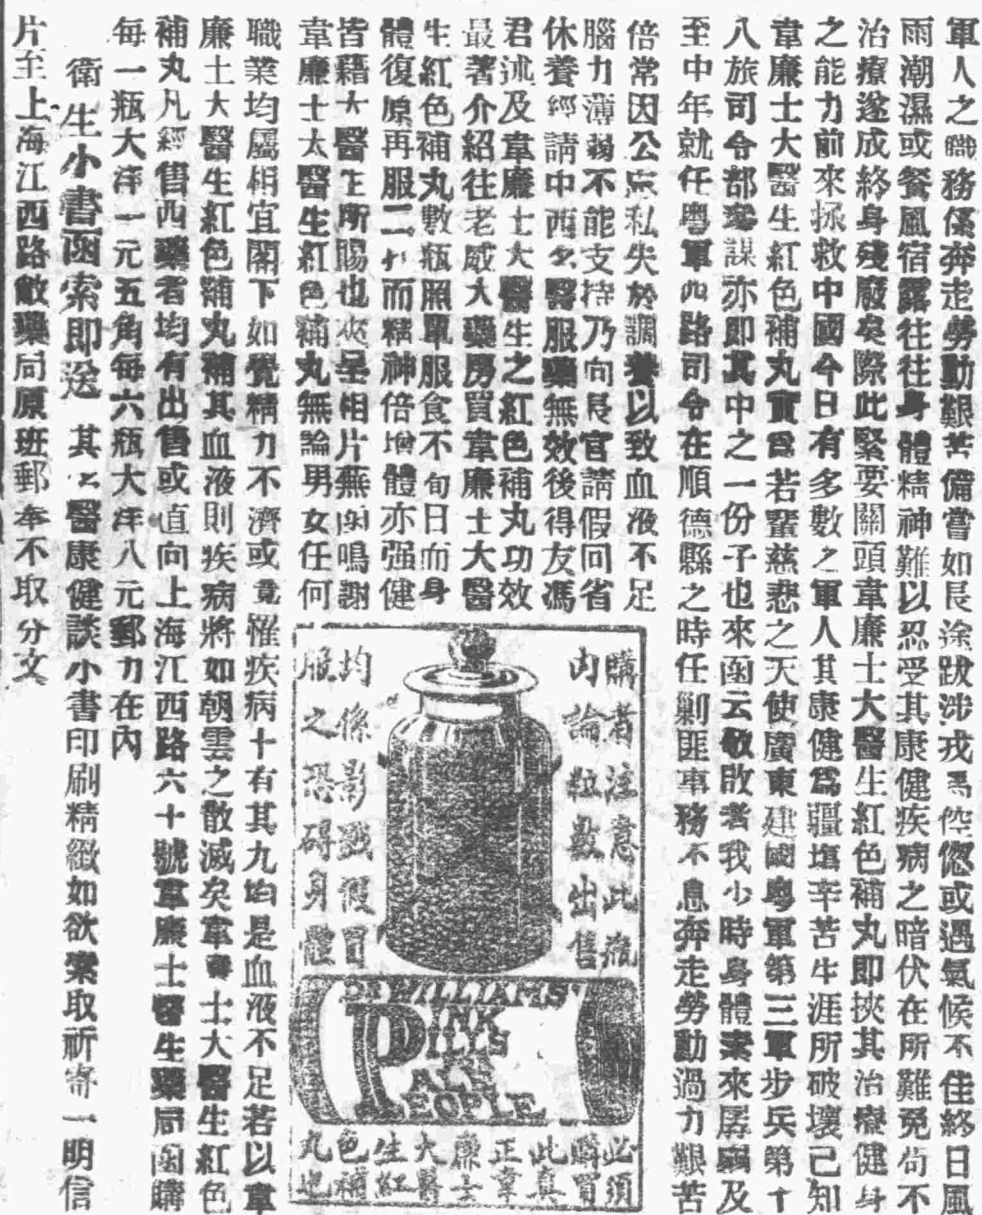 軍人之職務僕奔走勞動艱苦備嘗如長途跋涉戎馬倥傯或遇氣候不佳終日風
雨潮濕或餐風宿露往往身體精神難以忍受其康健疾病之暗伏在所難免尙不
治療遂成終身殘廢矣際此緊要關頭韋廉士大醫生紅色補丸即挾其治療健身
之能力前來拯救中國今日有多數之軍人其康健爲疆塲辛苦生涯所破壞已知
韋廉士大醫生紅色補丸實爲若輩慈悲之天使廣東建國粵軍第三軍步兵第十
八旅司令部叅謀亦即其中之一份子也來函云敬啟者我少時身體素來孱弱及
至中年就任粵軍四路司令在順德縣之時任剿匪事務不息奔走勞動過力艱苦
倍常因公忘私失於調養以致血液不足
腦力薄弱不能支持乃向長官請假回省
休養經請中西名醫服藥無效後得友馮
君述及韋廉士大醫生之紅色補丸功效
最著介紹往老威大藥房買韋廉士大醫
生紅色補丸數瓶照單服食不旬日而身
體復原再服二二十而精神倍增體亦强健
皆藉大醫生所賜也夾呈相片蕪函鳴謝
韋廉士大醫生紅色補丸無論男女任何
職業均屬相宜閣下如覺精力不濟或竟罹疾病十有其九均是血液不足若以韋
廉士大醫生紅色補丸補其血液則疾病將如朝雲之散滅矣韋廉士大醫生紅色
補丸凡經售西藥者均有出售或值向上海江西路六十號韋廉士醫生藥局函購
每一瓶大洋一元五角每六瓶大洋八元郵力在內
衛生小書函索即送 其名醫康健談小書印刷精緻如欲索取祈寄一明信
片至上海江西路敝藥局原班郵奉不取分文
購者注意此瓶
內論粒數出售
均係影戤假冒
服之恐碍身體
DR WILLIAMS'
PINK
PILLS
FOR
PEOPLE
必須購買此真正韋廉士大醫生紅色補丸也